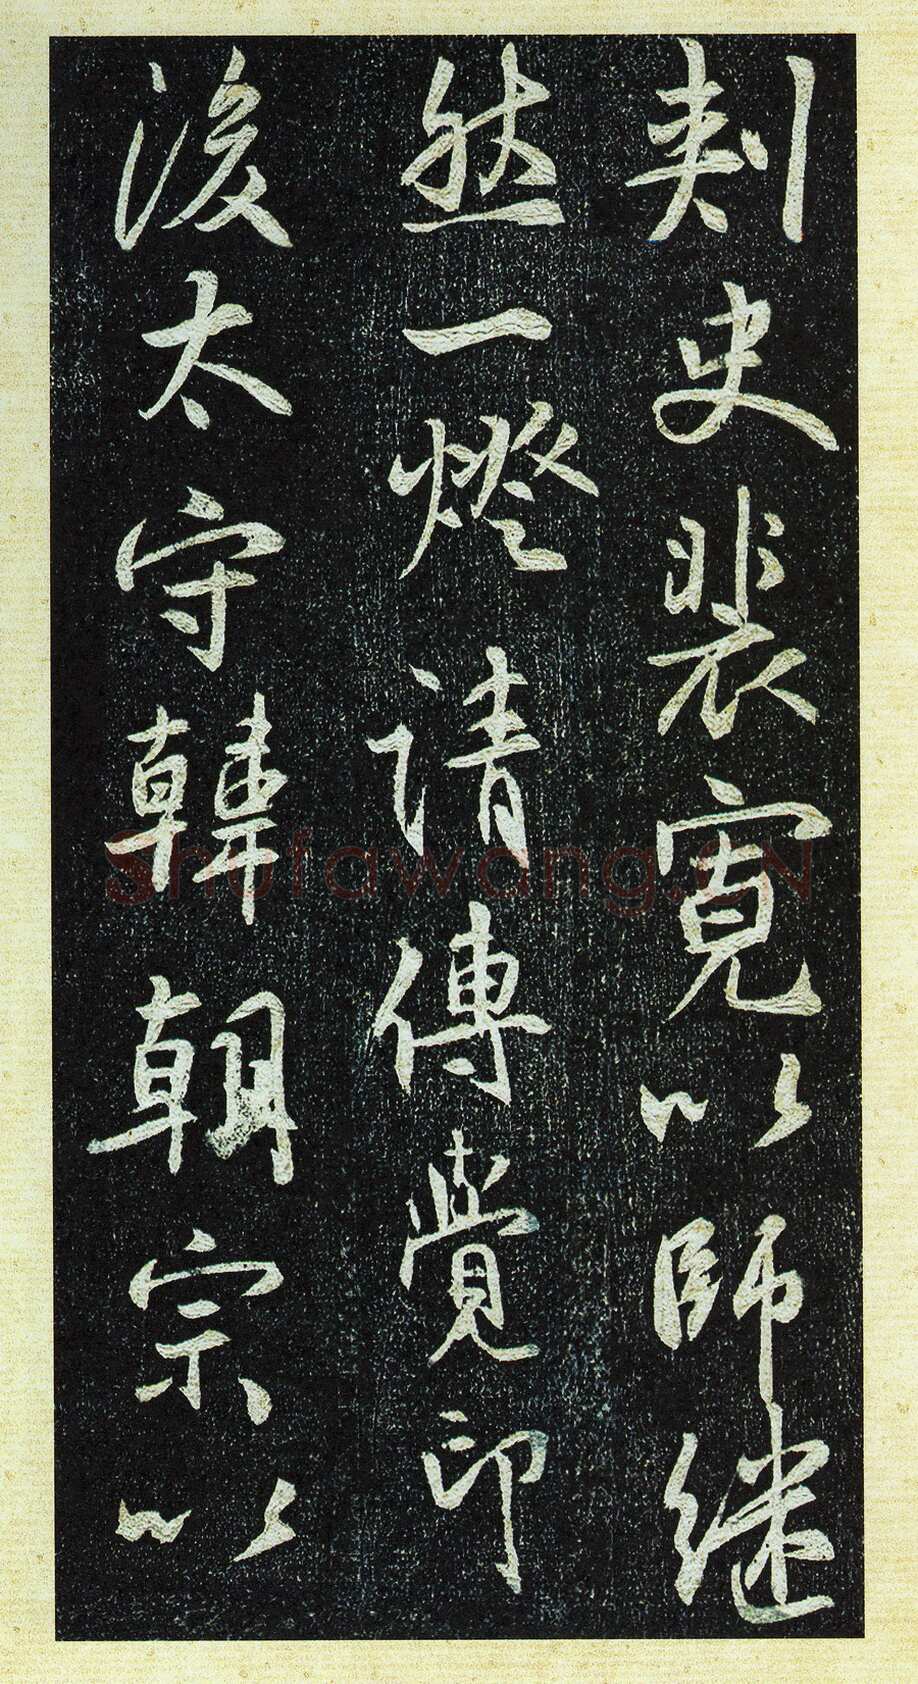 刾史裴寛以師继
然一燈请傳覺印
後太守韓朝宗以
Shufawang.CN